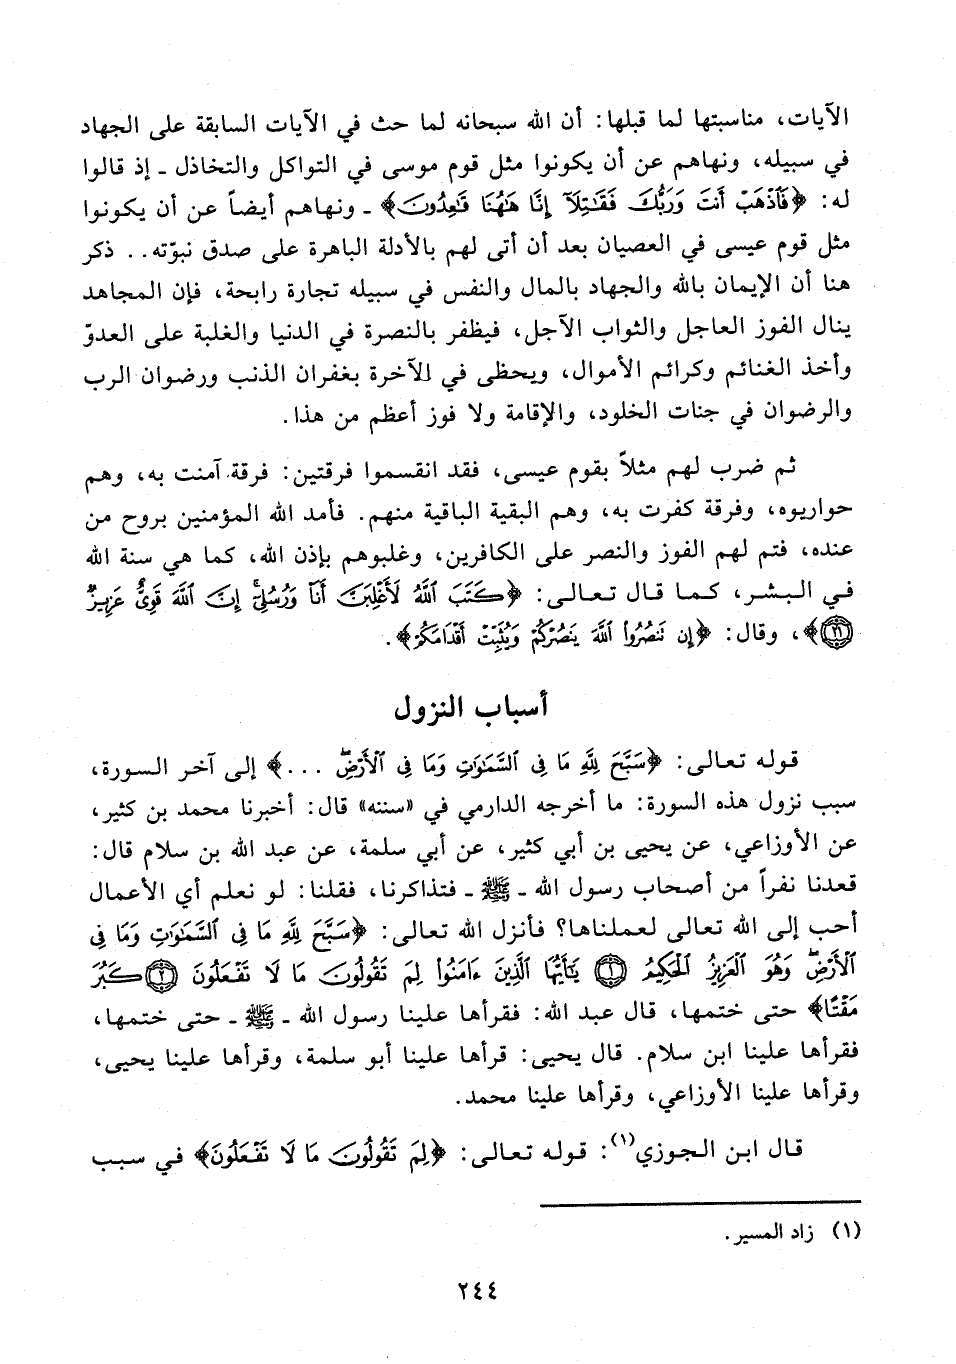 الآيات، مناسبتها لما قبلها: أن الله سبحانه لما حث في الآيات السابقة على الجهاد
في سبيله، ونهاهم عن أن يكونوا مثل قوم موسى في التواكل والتخاذل ـ إذ قالوا
له: ﴿فَاذْهَبْ أَنتَ وَرَبُّكَ فَقَاتِلَا إِنَّا هَاهُنَا قَاعِدُونَ﴾ ـ ونهاهم أيضاً عن أن يكونوا
مثل قوم عيسى في العصيان بعد أن أتى لهم بالأدلة الباهرة على صدق نبوّته.. ذكر
هنا أن الإيمان بالله والجهاد بالمال والنفس في سبيله تجارة رابحة، فإن المجاهد
ينال الفوز العاجل والثواب الآجل، فيظفر بالنصرة في الدنيا والغلبة على العدوّ
وأخذ الغنائم وكرائم الأموال، ويحظى في الآخرة بغفران الذنب ورضوان الرب
والرضوان في جنات الخلود، والإقامة ولا فوز أعظم من هذا.
ثم ضرب لهم مثلاً بقوم عيسى، فقد انقسموا فرقتين: فرقة آمنت به، وهم
حواريوه، وفرقة كفرت به، وهم البقية الباقية منهم. فأمد الله المؤمنين بروح من
عنده، فتم لهم الفوز والنصر على الكافرين، وغلبوهم بإذن الله، كما هي سنة الله
في البشر، كما قال تعالى: ﴿كَتَبَ اللَّهُ لَأَغْلِبَنَّ أَنَا وَرُسُلِي إِنَّ اللَّهَ قَوِيٌّ عَزِيزٌ
(٢١)﴾، وقال: ﴿إِن تَنصُرُوا اللَّهَ يَنصُرْكُمْ وَيُثَبِّتْ أَقْدَامَكُمْ﴾.
أسباب النزول
قوله تعالى: ﴿سَبَّحَ لِلَّهِ مَا فِي السَّمَاوَاتِ وَمَا فِي الْأَرْضِ ...﴾ إلى آخر السورة،
سبب نزول هذه السورة: ما أخرجه الدارمي في «سننه» قال: أخبرنا محمد بن كثير،
عن الأوزاعي، عن يحيى بن أبي كثير، عن أبي سلمة، عن عبد الله بن سلام قال:
قعدنا نفراً من أصحاب رسول الله ـ ﷺ ـ فتذاكرنا، فقلنا: لو نعلم أي الأعمال
أحب إلى الله تعالى لعملناها؟ فأنزل الله تعالى: ﴿سَبَّحَ لِلَّهِ مَا فِي السَّمَاوَاتِ وَمَا فِي
الْأَرْضِ وَهُوَ الْعَزِيزُ الْحَكِيمُ (١) يَا أَيُّهَا الَّذِينَ ءَامَنُوا لِمَ تَقُولُونَ مَا لَا تَفْعَلُونَ (٢) كَبُرَ
مَقْتًا﴾ حتى ختمها، قال عبد الله: فقرأها علينا رسول الله ـ ﷺ ـ حتى ختمها،
فقرأها علينا ابن سلام. قال يحيى: قرأها علينا أبو سلمة، وقرأها علينا يحيى،
وقرأها علينا الأوزاعي، وقرأها علينا محمد.
قال ابن الجوزي(١): قوله تعالى: ﴿لِمَ تَقُولُونَ مَا لَا تَفْعَلُونَ﴾ في سبب
(١) زاد المسير.
٢٤٤